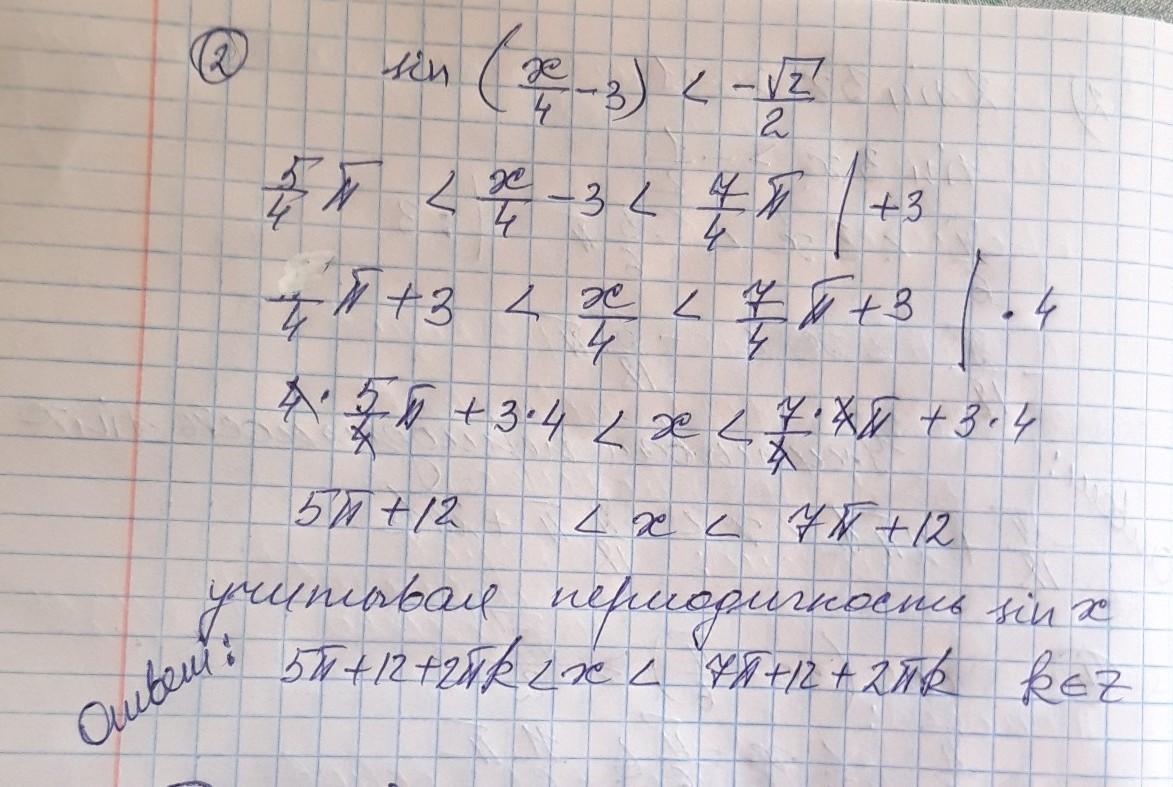 ② sin (x/4 - 3) < -√2/2
5/4 π < x/4 - 3 < 7/4 π | +3
/4 π + 3 < x/4 < 7/4 π + 3 | · 4
4 · 5/4 π + 3·4 < x < 7/4 · 4π + 3·4
5π + 12 < x < 7π + 12
учитывая периодичность sin x
Ответ: 5π+12+2πk < x < 7π+12+2πk k∈Z